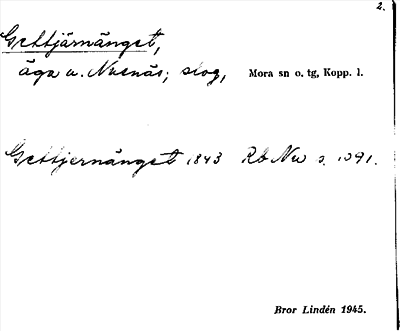 2.
Gettjärnänget,
äga u. Nusnäs; skog, Mora sn o. tg, Kopp. l.
Gettjernänget 1843 Rb Nu s. 1091.
Bror Lindén 1945.